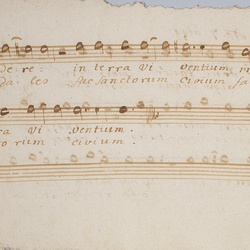 de re in terra vi ventium in
da leo sae sanctorum civium sa
ra vi ventium.
o rum civium.